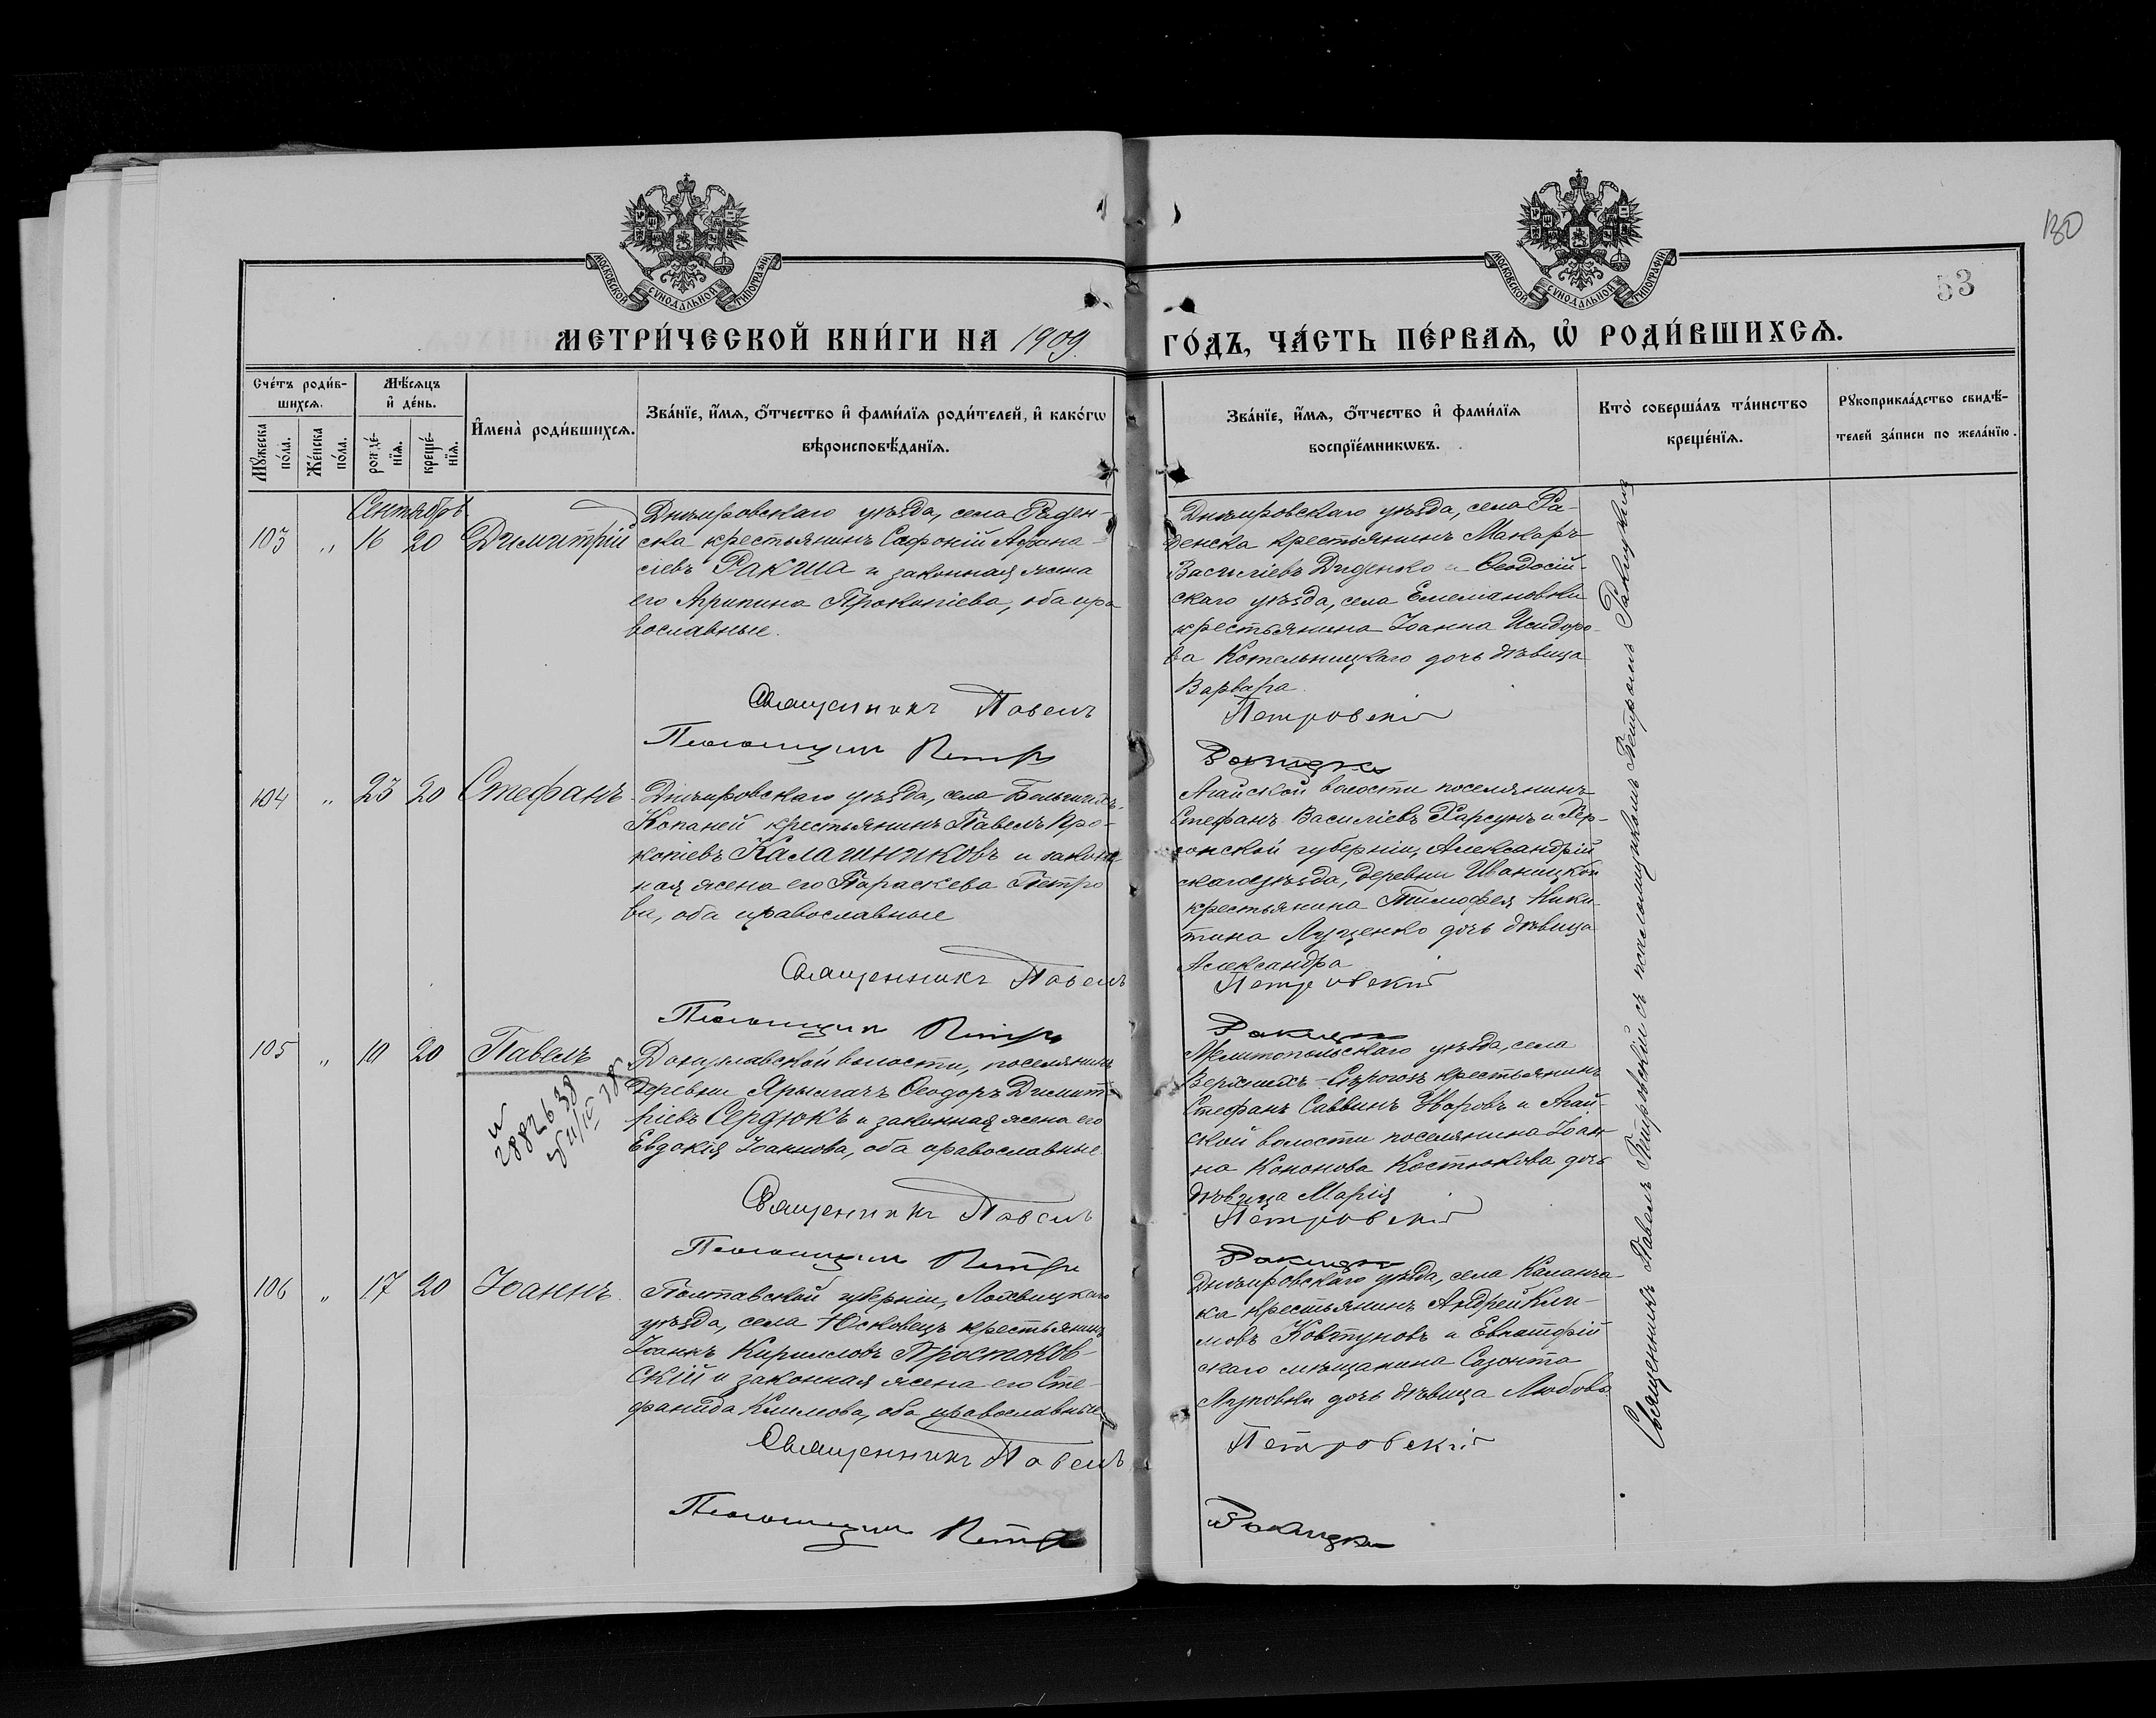 130
53
МОСКОВСКОЙ СУНОДАЛЬНОЙ ТИПОГРАФІИ
МОСКОВСКОЙ СУНОДАЛЬНОЙ ТИПОГРАФІИ
МЕТРИ́ЧЕСКОЙ КНИ́ГИ НА 1909
ГО́ДЪ, ЧА́СТЬ ПЕ́РВАѦ, Ѿ РОДИ́ВШИХСѦ.
Сче́тъ роди́в-
шихсѧ.
Мѣ́сѧцъ
и҆ де́нь.
Мꙋ́жеска
по́ла.
Же́нска
по́ла.
рожде́-
нїѧ.
креще́-
нїѧ.
И҆мена̀ роди́вшихсѧ.
Зва́нїе, и҆́мѧ, ѻ҆́тчество и҆ фами́лїѧ роди́телей, и҆ како́гѡ
вѣроисповѣ́данїѧ.
Зва́нїе, и҆́мѧ, ѻ҆́тчество и҆ фами́лїѧ
воспрїе́мникѡвъ.
Кто̀ соверша́лъ та́инство
креще́нїѧ.
Рꙋкоприкла́дство свидѣ́-
телей за́писи по жела́нїю.
Сентябрь
103 " 16 20 Димитрій
Днѣпровскаго уѣзда, села Раден-
ска крестьянинъ Софоній Афана-
сіевъ Ракша и законная жена
его Агрипина Прокопіева, оба пра
вославные.
Священникъ Павелъ
Псаломщикъ Петръ
Днѣпровскаго уѣзда, села Ра-
денска крестьянинъ Макаръ
Василіевъ Диденко и Ѳеодосій-
скаго уѣзда, села Емельяновки
крестьянина Іоанна Исидоро-
ва Котельницкаго дочь дѣвица
Варвара.
Петровскій
Ракицкій
104 " 23 20 Стефанъ
Днѣпровскаго уѣзда, села Большихъ-
Копаней крестьянинъ Павелъ Про-
копіевъ Калашниковъ и закон
ная жена его Параскева Петро
ва, оба православные
Священникъ Павелъ
Псаломщикъ Петръ
Агайской волости поселянинъ
Стефанъ Василіевъ Фарсунъ и Хер-
сонской губерніи, Александрій
скаго уѣзда, деревни Иваницкой
крестьянина Тимофея Ники-
тина Луценко дочь дѣвица
Александра
Петровскій
Ракицкій
105 " 10 20 Павелъ
и
288 2638
Донузлавской волости, поселянинъ
деревни Ярылгачъ Ѳеодоръ Димит-
ріевъ Сердюкъ и законная жена его
Евдокія Іоаннова, оба православные
Священникъ Павелъ
Псаломщикъ Петръ
Мелитопольскаго уѣзда, села
Верхнихъ-Сѣрогозъ крестьянинъ
Стефанъ Саввинъ Уваровъ и Агай-
ской волости поселянина Іоан
на Кононова Костюкова дочь
дѣвица Марія
Петровскій
Ракицкій
106 " 17 20 Іоаннъ.
Полтавской губерніи, Лохвицкаго
уѣзда, села Юсковецъ крестьянинъ
Іоаннъ Кирилловъ Простоков-
скій и законная жена его Сте-
фанида Климова, оба православные
Священникъ Павелъ
Псаломщикъ Петръ
Днѣпровскаго уѣзда, села Каланча-
ка крестьянинъ Андрей Кли-
мовъ Ковтуновъ и Евпаторій
скаго мѣщанина Созонта
дочь дѣвица Любовь
Петровскій
Ракицкій
Священникъ Павелъ Петровскій съ псаломщикомъ Петромъ Ракицкимъ